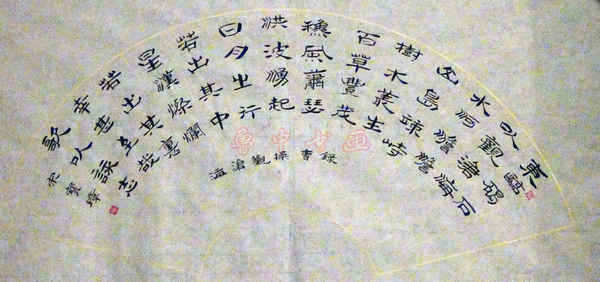 東臨碣石
以觀滄海
水何澹澹
山島竦峙
樹木叢生
百草豐茂
穐風蕭瑟
洪波湧起
日月之行
若出其中
星漢燦爛
若出其裏
幸甚至哉
歌以詠志
錄曹操觀滄海